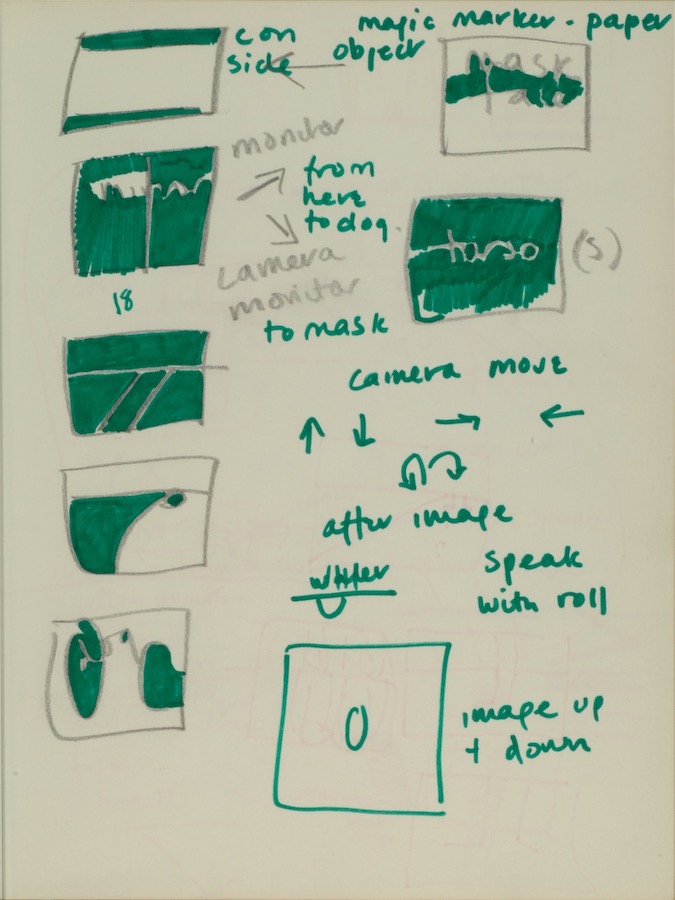 magic marker - paper
con
side
object
mask
monitor
from
here
to dog.
mirror
torso
(s)
camera
monitor
18
to mask
camera move
after image
water
speak
with roll
image up
+ down